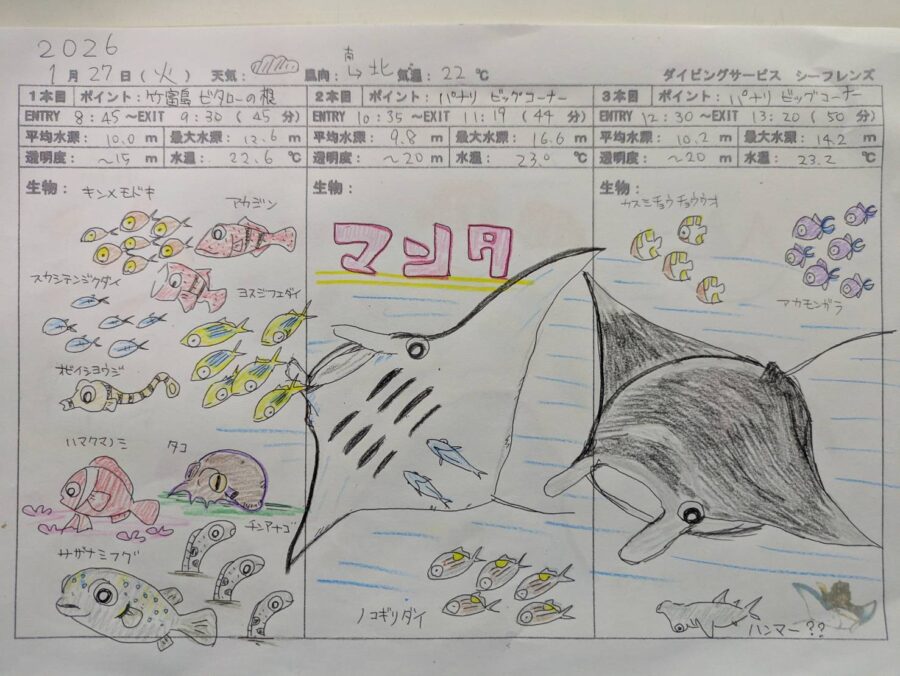 2026
1月27日(火) 天気: 風向: 南→北 気温: 22℃ ダイビングサービス シーフレンズ
1本目 ポイント: 竹富島 ビタローの根
ENTRY 8:45 ~EXIT 9:30 (45分)
平均水深: 10.0 m 最大水深: 12.6 m
透明度: ~15 m 水温: 22.6 ℃
生物:
キンメモドキ
アカジン
スカシテンジクダイ
ヨスジフエダイ
オビイシヨウジ
ハマクマノミ
タコ
チンアナゴ
サザナミフグ
2本目 ポイント: パナリ ビッグコーナー
ENTRY 10:35 ~EXIT 11:19 (44分)
平均水深: 9.8 m 最大水深: 16.6 m
透明度: ~20 m 水温: 23.0 ℃
生物:
マンタ
ノコギリダイ
3本目 ポイント: パナリ ビッグコーナー
ENTRY 12:30 ~EXIT 13:20 (50分)
平均水深: 10.2 m 最大水深: 14.2 m
透明度: ~20 m 水温: 23.2 ℃
生物:
カスミチョウチョウウオ
アカモンガラ
ハンマー??